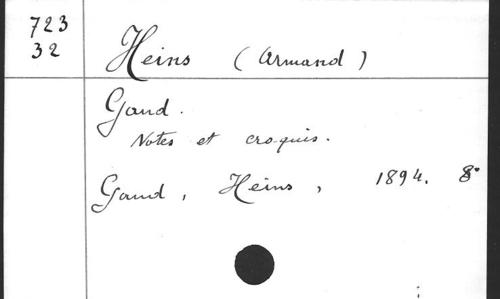 723
32
Heins (Armand)
Gand.
Notes et croquis.
Gand, Heins, 1894. 8°